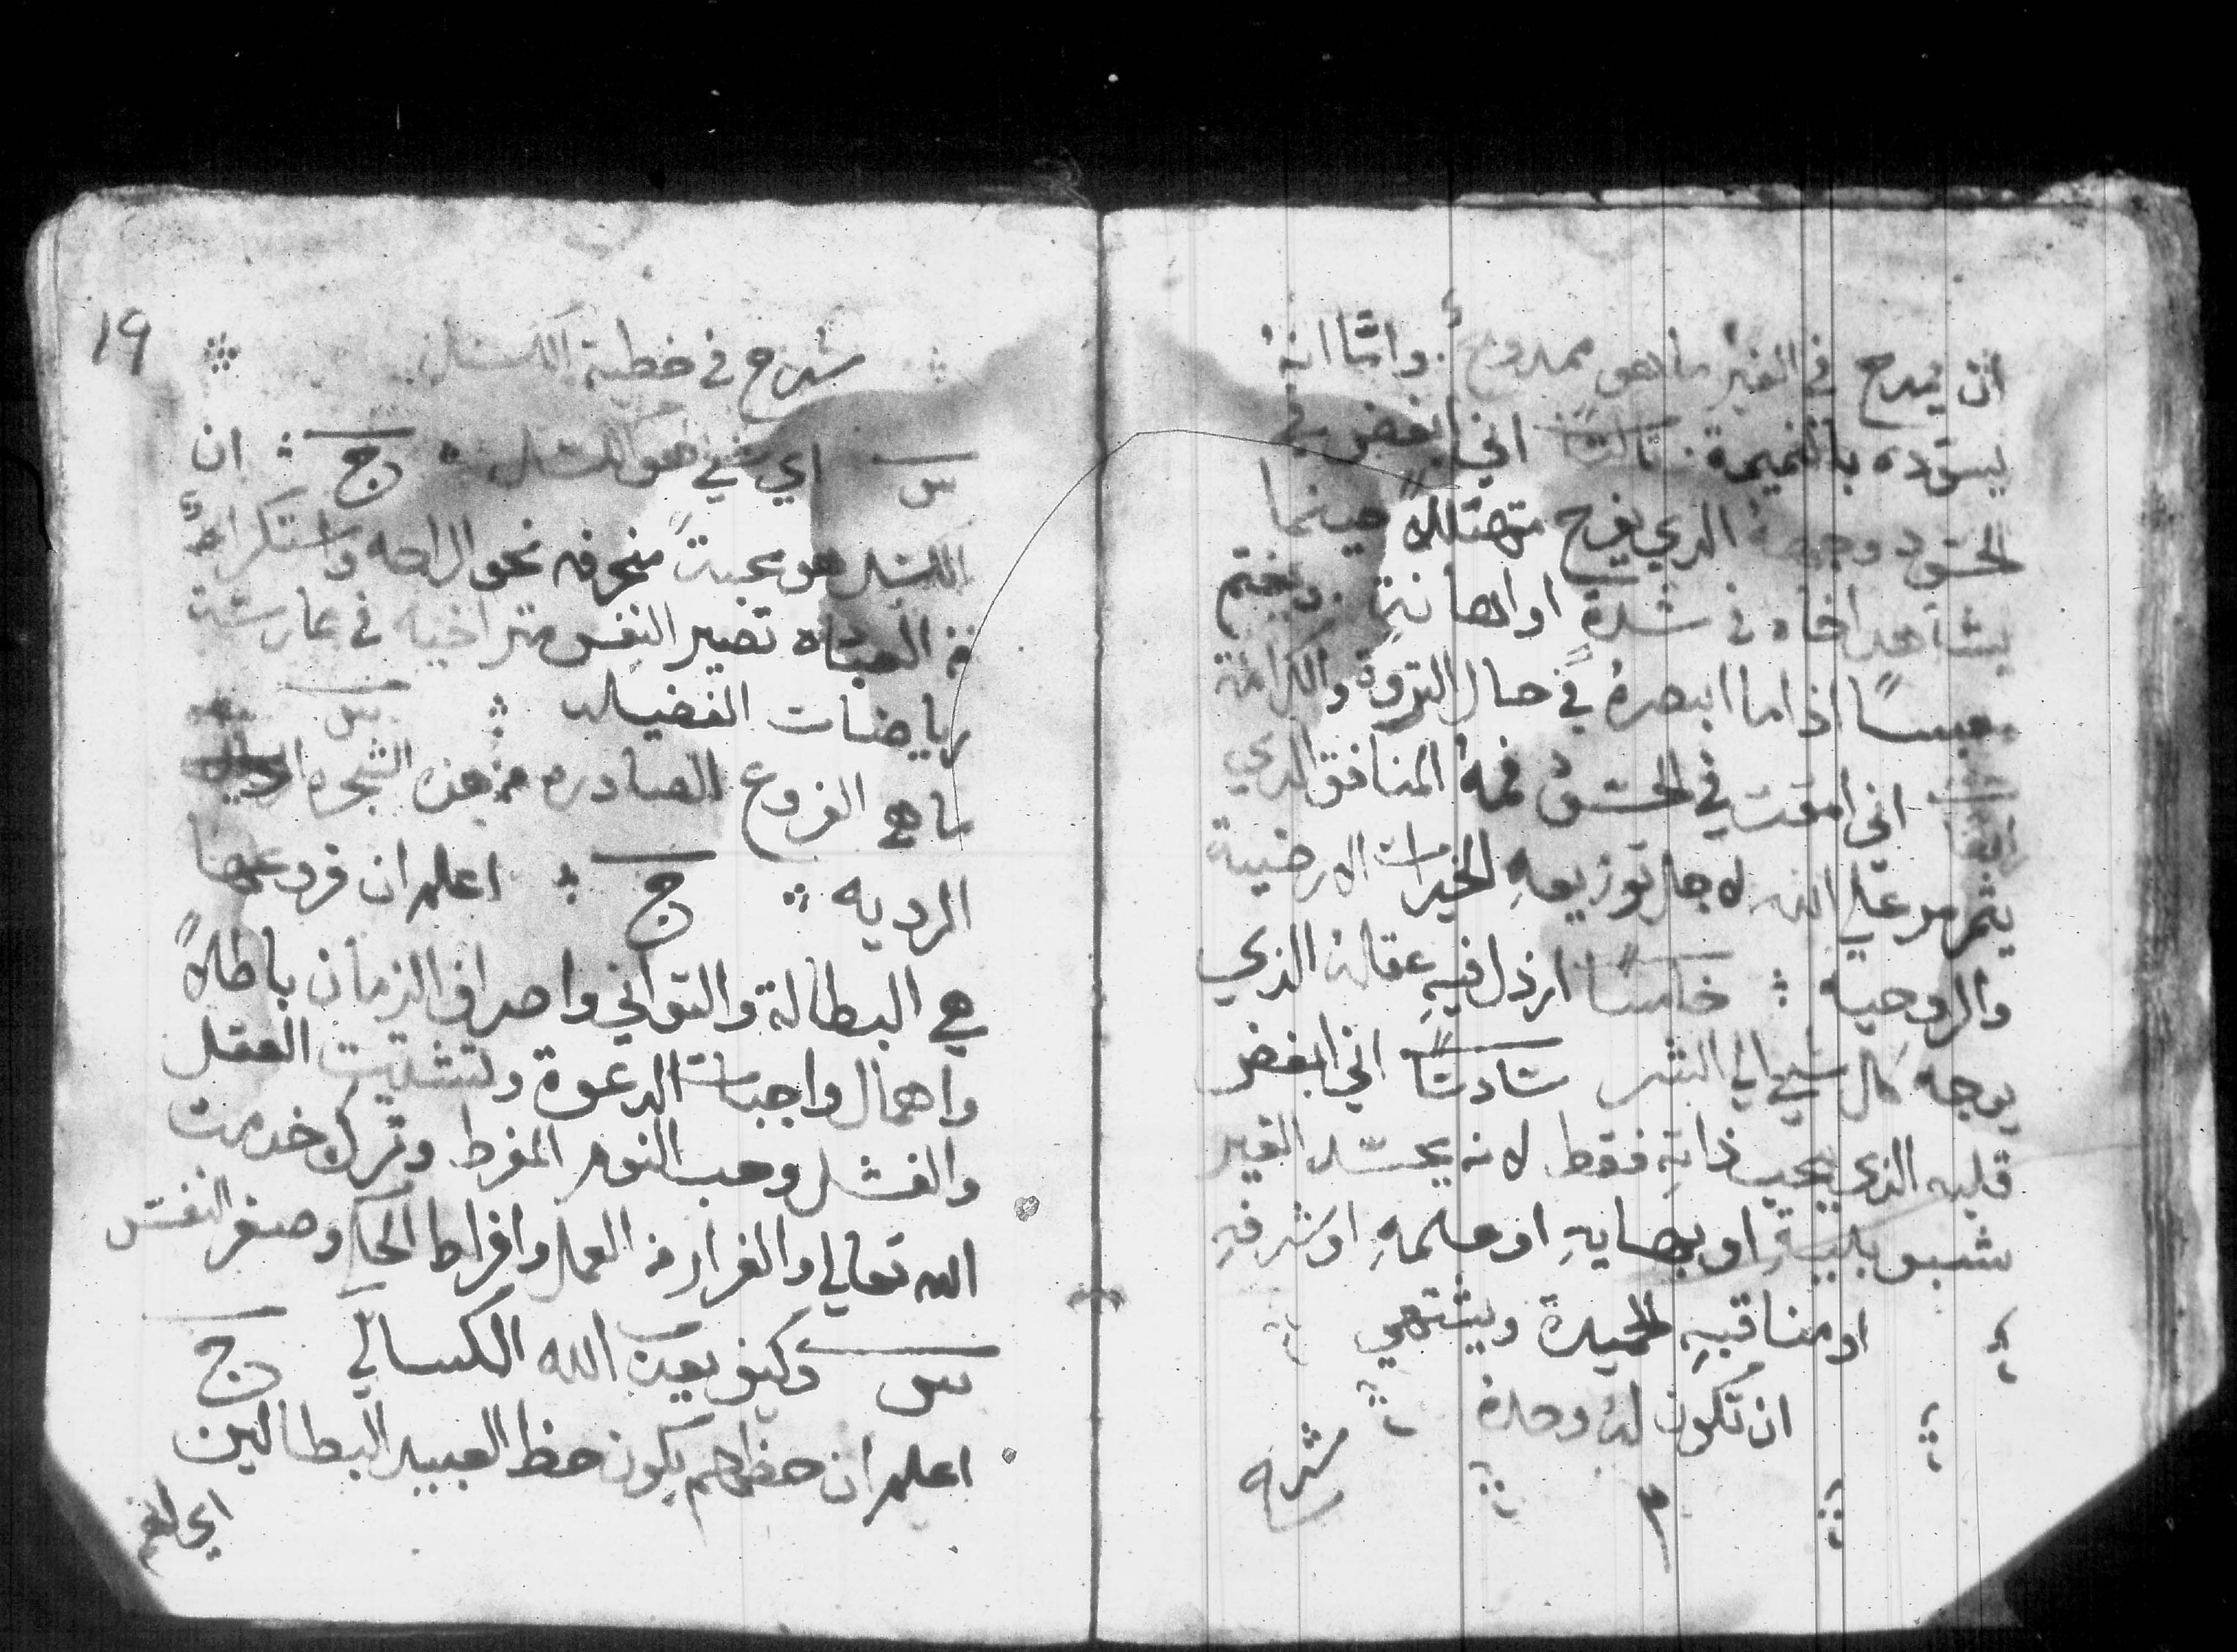 ان يمدح في الغير ما هو ممدوح. وامّا انهُ
يسوّده بالنميمة. ثالثًا اني ابغض في
الحسود وجههُ الذي يفرح متهللاً حينما
يشاهد اخاه في شدةٍ او اهانةٍ. ويغتم
معبسًا اذا ما ابصرهُ في حال الثروة والكرامة
رابعًا اني امقت في الحسود فمهُ المنافق الذي
يتمرمر على الله لاجل توزيعهِ الخيرات الارضية
والروحيه ؞ خامسًا ارذل فيهِ عقلهُ الذي
يوجه كل شي الي الشر سادسًا اني ابغض
قلبه الذي يحب ذاتهِ فقط لانه يحسد الغير
او علمهِ او شرفهِ
او مناقبهِ الحميدة ويشتهي
ان تكون لهُ وحدهُ
شرح
19
شرح في خطية الكسل
س اي شي هو الكسل ؞ ج ؞ ان
الكسل هو محبةً منحرفه نحو الراحه واستكراهٌ
من العباده تصير النفس متراخيه في ممارسة
رياضات الفضيله ؞ س
ما هي الفروع الصادره من هذه الشجره
الرديه ؞ ج ؞ اعلم ان فروعها
هي البطالة والتواني واصراف الزمان باطلاً
واهمال واجبات الدعوة وتشتيت العقل
والفشل وحب النوم المفرط وترك خدمت
الله تعالي والفرار من العمل وافراط الحيا وصغر النفس
س وكيف يعين الله الكسالي ج
اعلم ان حظهم يكون حظ العبيد البطالين